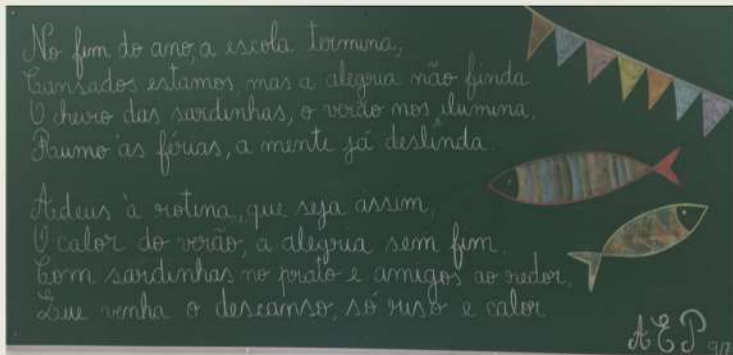 No fim do ano, a escola termina,
Cansados estamos mas a alegria não finda
O cheiro das sardinhas, o verão nos ilumina.
Rumo às férias, a mente já deslinda.
Adeus à rotina, que seja assim,
O calor do verão, a alegria sem fim.
Com sardinhas no prato e amigos ao redor,
Que venha o descanso, só riso e calor.
AEP